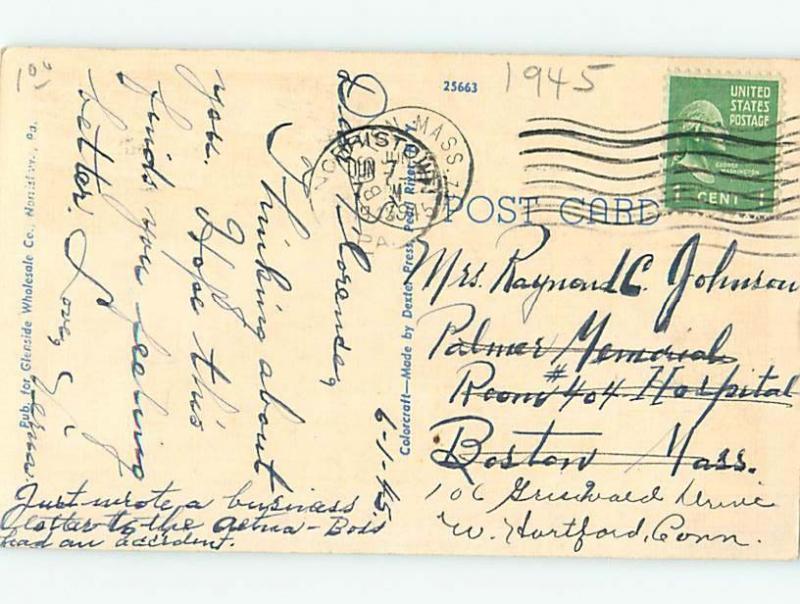 25663
1945
UNITED
STATES
POSTAGE
GEORGE
WASHINGTON
1 CENT 1
POST CARD
Mrs. Raymond C. Johnson
Palmer Memorial
Room #404 Hospital
Boston Mass.
106 Griswold Drive
W. Hartford, Conn.
6-1-45
Dear Florence,
I thinking about
you. Hope this
finds you feeling
better. Love,
Just wrote a business
letter to the Aetna-Boss
had an accident.
Pub. for Glenside Wholesale Co., Norristown, Pa.
Colorcraft—Made by Dexter Press, Pearl River, N.Y.
NORRISTOWN
JUN
PA
MASS.